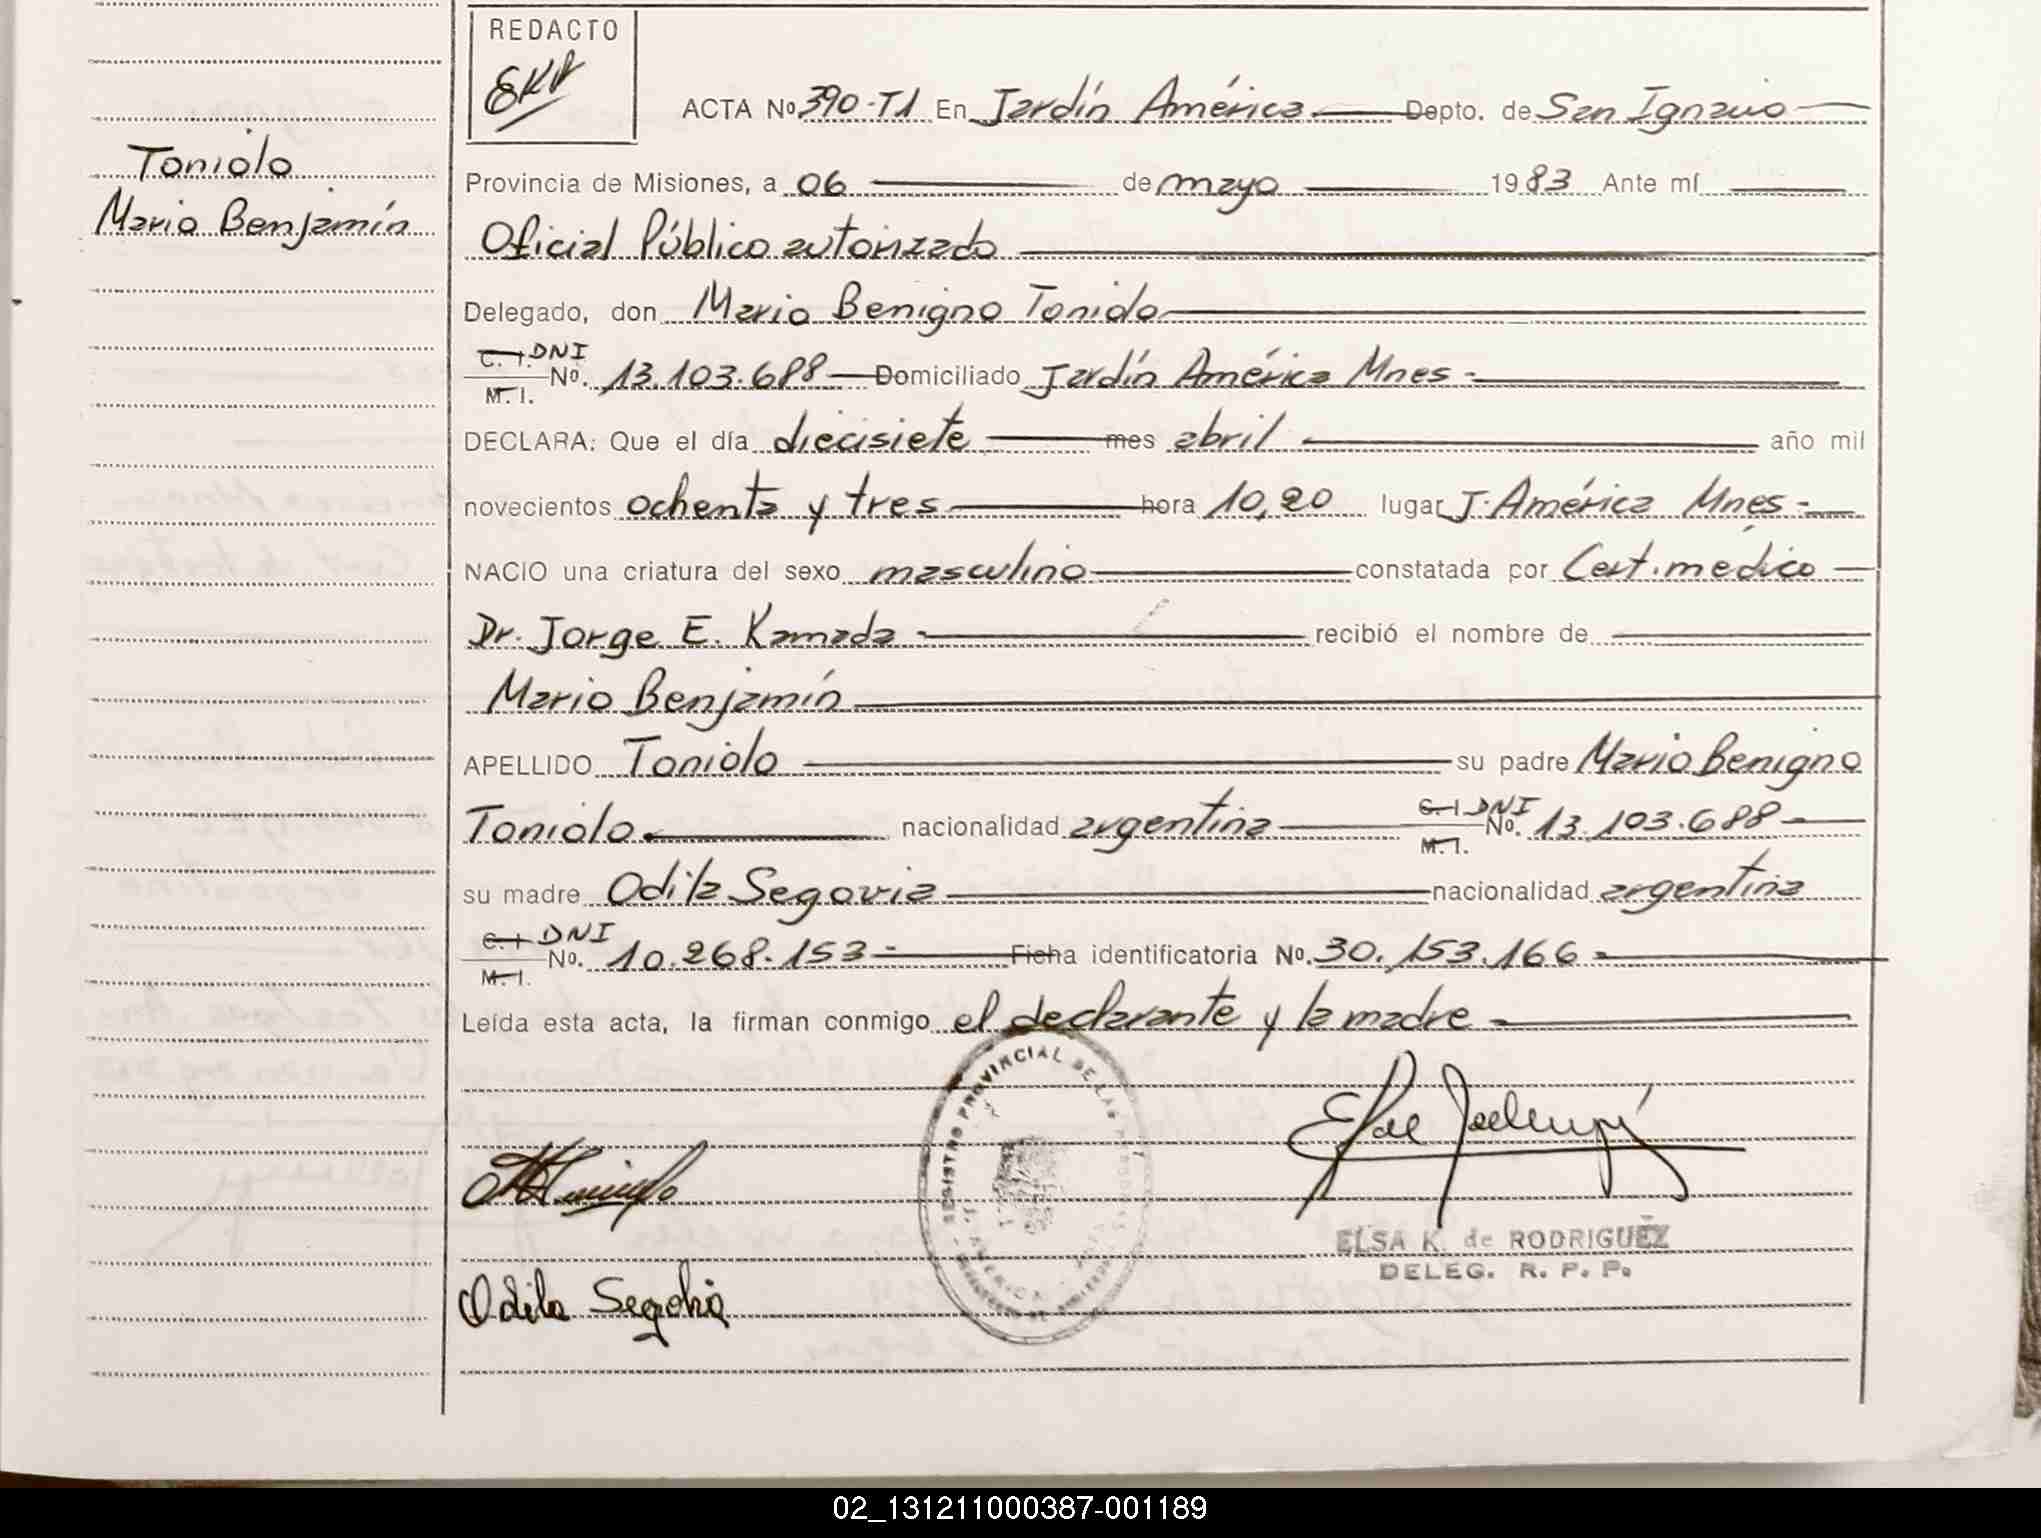 REDACTO
EKR
ACTA Nº 390-T1 En Jardín América Depto. de San Ignacio
Toniolo
Mario Benjamín
Provincia de Misiones, a 06 de mayo 1983 Ante mí
Oficial Público autorizado
Delegado, don Mario Benigno Toniolo
C. I. DNI
M. I. Nº. 13.103.688 Domiciliado Jardín América Mnes -
DECLARA: Que el día diecisiete mes abril año mil
novecientos ochenta y tres hora 10,20 lugar J. América Mnes -
NACIO una criatura del sexo masculino constatada por Cert. médico
Dr. Jorge E. Kamada - recibió el nombre de
Mario Benjamín
APELLIDO Toniolo su padre Mario Benigno
Toniolo nacionalidad argentina C. I. DNI M. I. Nº. 13.103.688 -
su madre Odila Segovia nacionalidad argentina
C. I. DNI
M. I. Nº. 10.268.153 - Ficha identificatoria Nº. 30.153.166 -
Leída esta acta, la firman conmigo el declarante y la madre -
REGISTRO PROVINCIAL DE LAS PERSONAS
ELSA K. de RODRIGUEZ
DELEG. R. P. P.
Odila Segovia
02_131211000387-001189